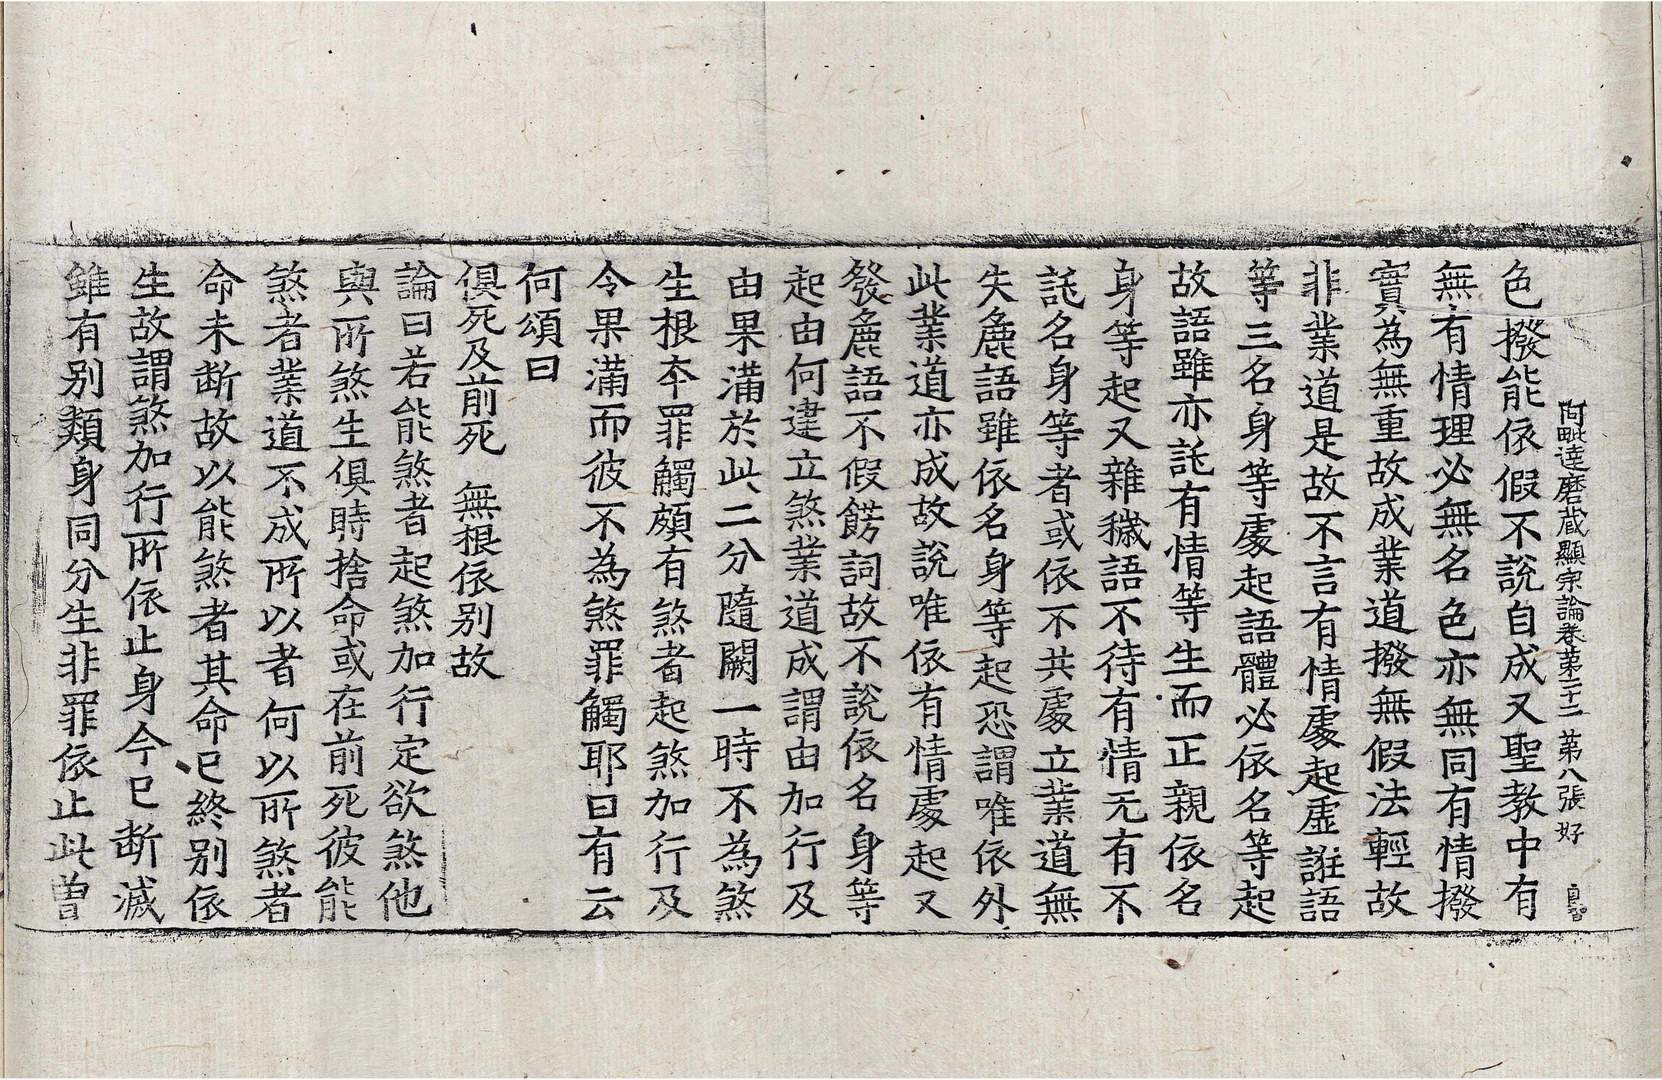 阿毗達磨蔵顯宗論卷第二十二 第八張 好
色撥能依假不說自成又聖教中有
無有情理必無名色亦無同有情撥
實為無重故成業道撥無假法輕故
非業道是故不言有情處起虛誑語
等三名身等處起語體必依名等起
故語雖亦託有情等生而正親依名
身等起又雜穢語不待有情无有不
託名身等者或依不共處立業道無
失麁語雖依名身等起恐謂唯依外
此業道亦成故說唯依有情處起又
發麁語不假餝詞故不說依名身等
起由何建立煞業道成謂由加行及
由果滿於此二分隨闕一時不為煞
生根夲罪觸頗有煞者起煞加行及
令果滿而彼不為煞罪觸耶曰有云
何頌曰
俱死及前死 無根依别故
論曰若能煞者起煞加行定欲煞他
與所煞生俱時捨命或在前死彼能
煞者業道不成所以者何以所煞者
命未断故以能煞者其命已終別依
生故謂煞加行所依止身今已断滅
雖有别類身同分生非罪依止此曽